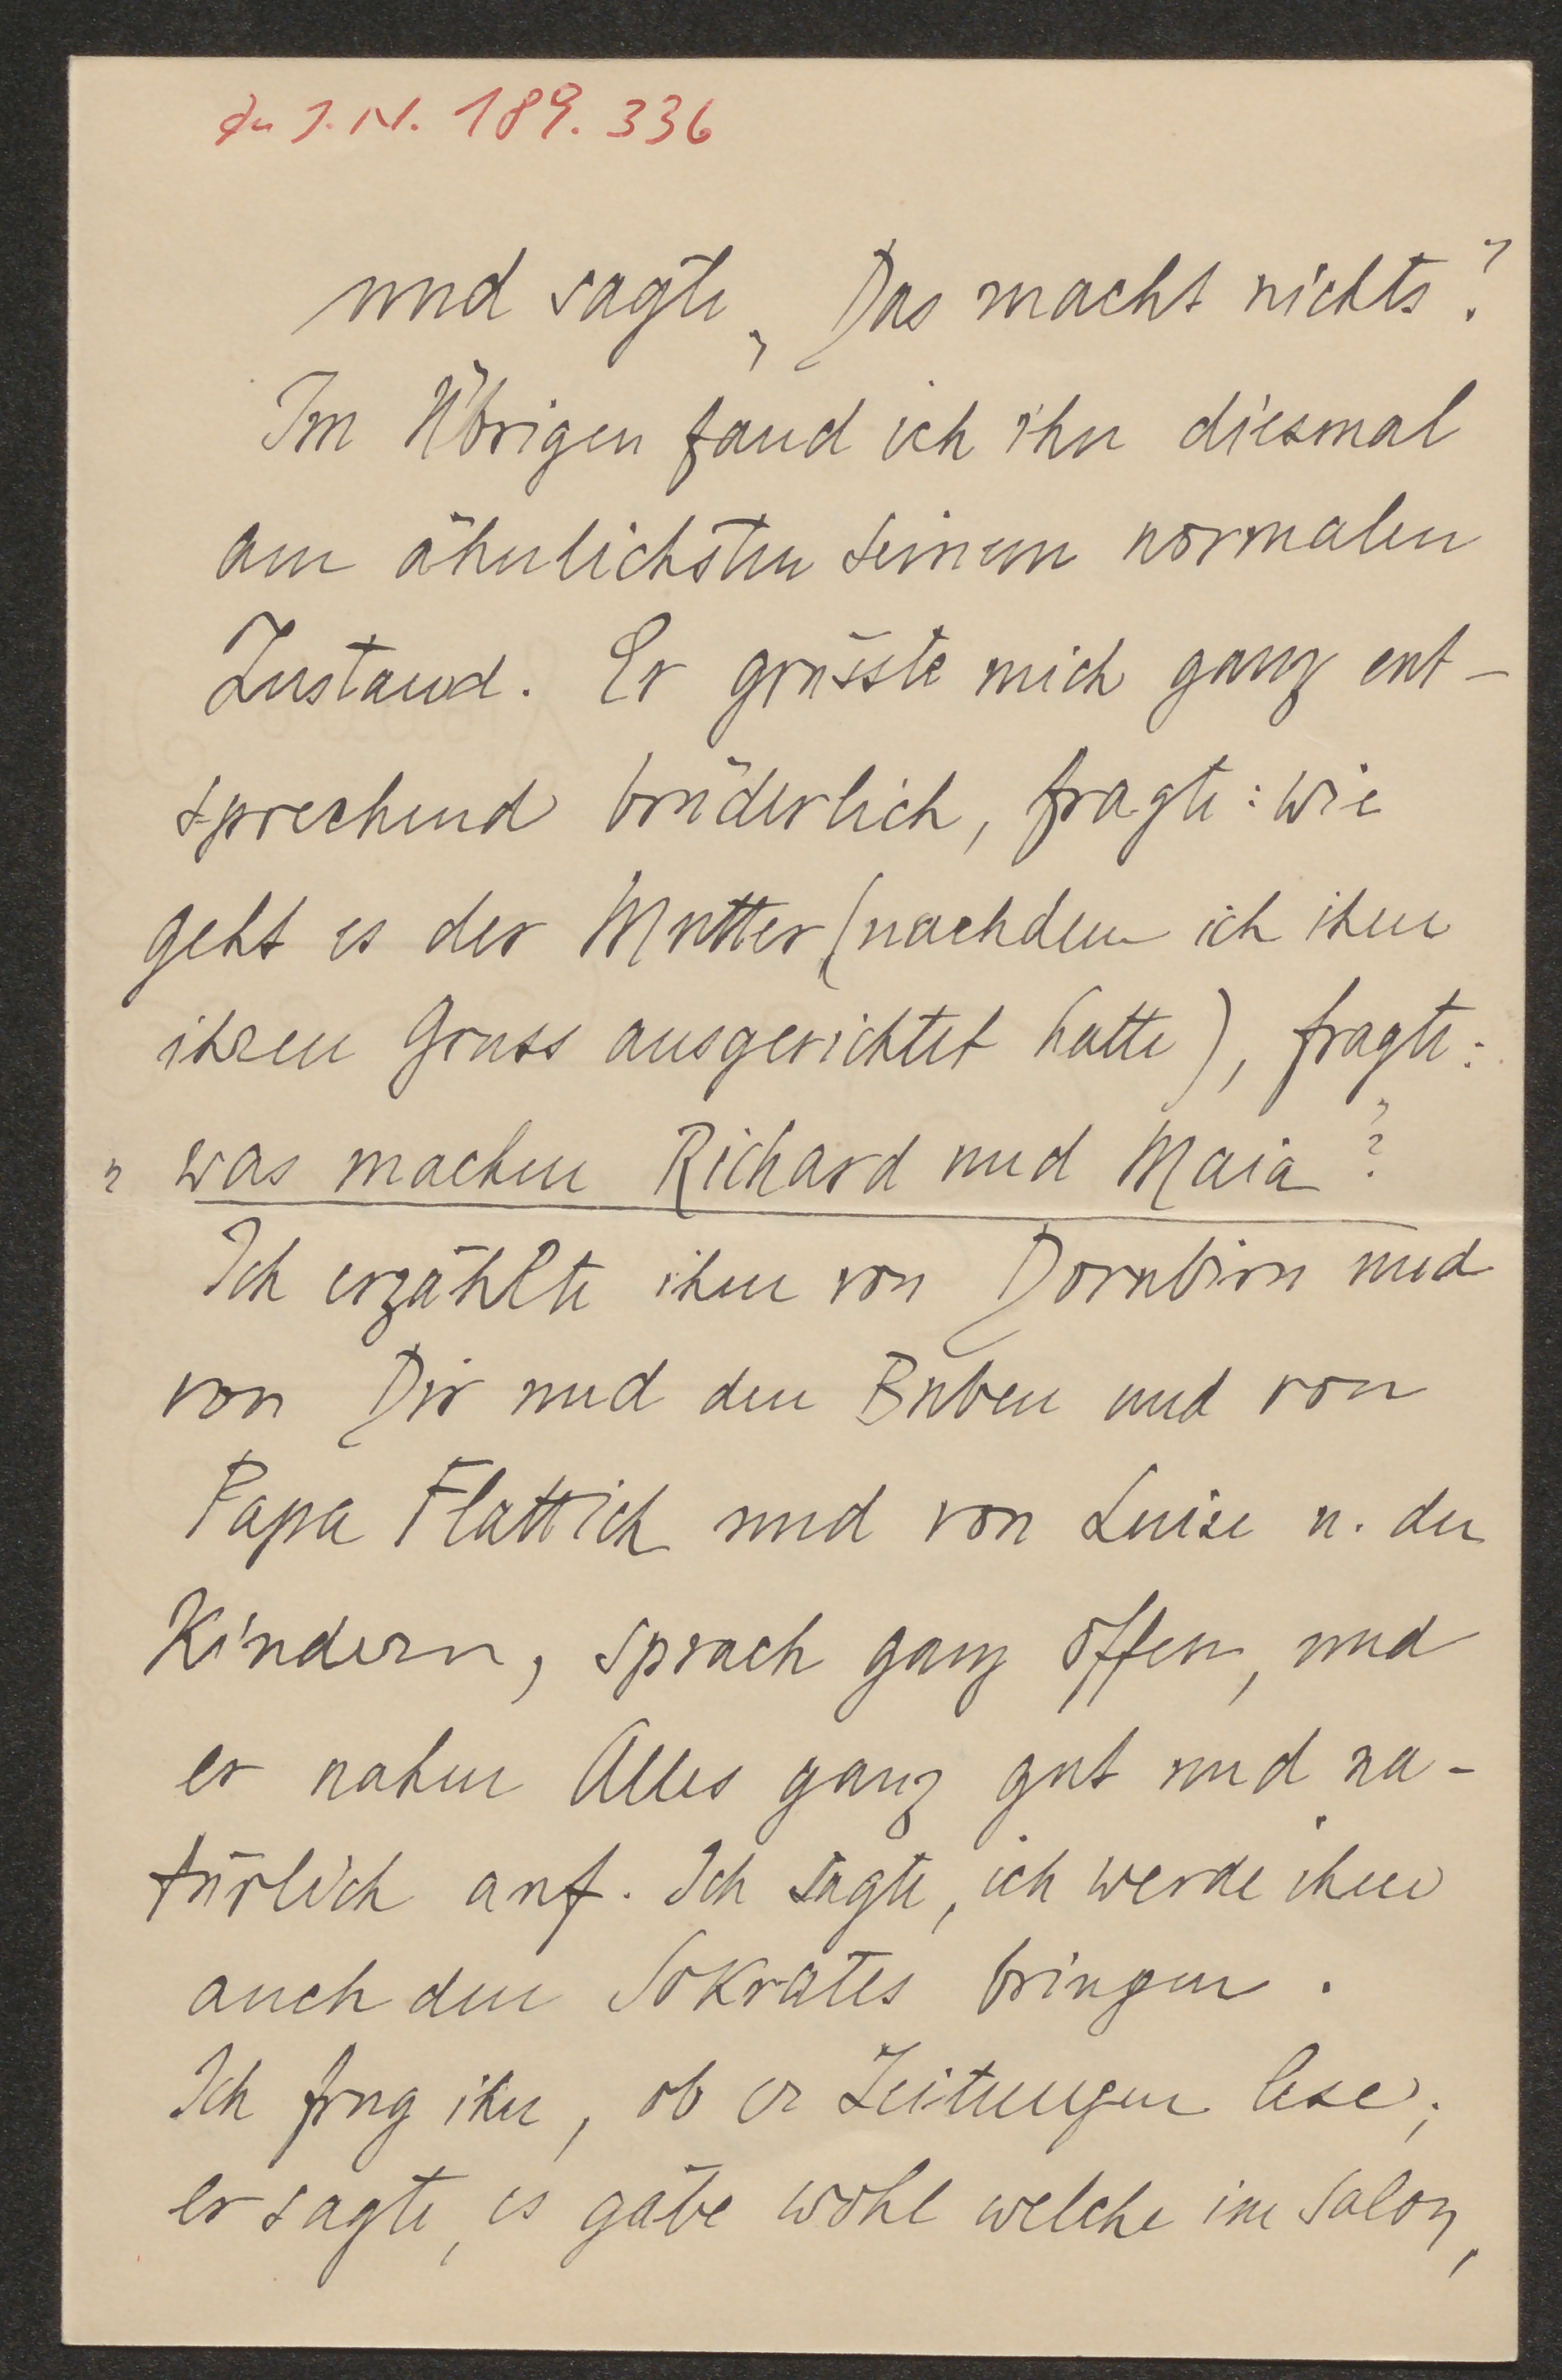 Zu I. N. 189.336
und sagte „Das macht nichts".
Im Übrigen fand ich ihn diesmal
am ähnlichsten seinem normalen
Zustand. Er grüsste mich ganz ent-
sprechend brüderlich, fragte: wie
geht es der Mutter (nachdem ich ihm
ihren Gruss ausgerichtet hatte), fragte:
„was machen Richard und Maia"?
Ich erzählte ihm von Dornbirn und
von Dir und den Buben und von
Papa Flattich und von Luise u. den
Kindern, sprach ganz offen, und
er nahm Alles ganz gut und na-
türlich auf. Ich sagte, ich werde ihm
auch den Sokrates bringen.
Ich frug ihn, ob er Zeitungen lese;
er sagte, es gäbe wohl welche im Salon,